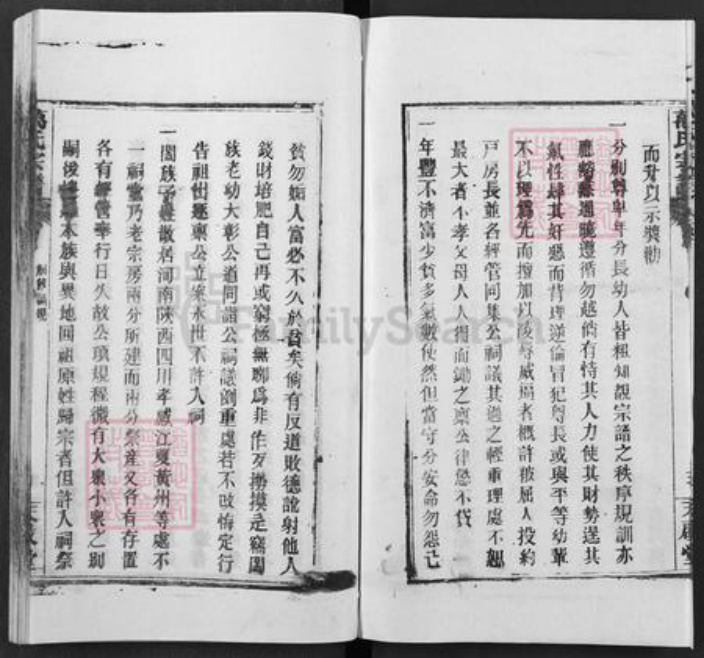 而升以示獎勸
一分別尊卑年分長幼人皆粗知觀宗譜之秩序規訓亦
應 遵循勿越倘有恃其人力使其財勢逞其
氣性肆其奸惡而背理逆倫冒犯尊長或與平等幼輩
不以理爲先而擅加以凌辱威逼者概許被屈人投約
戸房長並各經管同集公祠議其過之輕重理處不
最大者不孝父母人人得而鋤之稟公律懲不貸
一年豐不濟富少貧多氣數使然但當守分安命勿怨己
貧勿媚人富必不久於貧矣倘有反道敗德訛射他人
錢財培肥自己再或窮極無聊爲非作歹掏摸走竊闔
族老幼大彰公道同諧公祠議創重處若不改悔定行
告祖出逐稟公立案永世不許入祠
一閤族子 散居河南陝西四川孝感江夏黃州等處不
一祠堂乃老宗房兩分所建而兩分祭産又各有存置
各有經管奉行日久故公項規程微有大衆小衆之別
嗣後 本族與異地同祖原姓歸宗者但許入祠祭
萬氏宗
天啟堂
FamilySearch